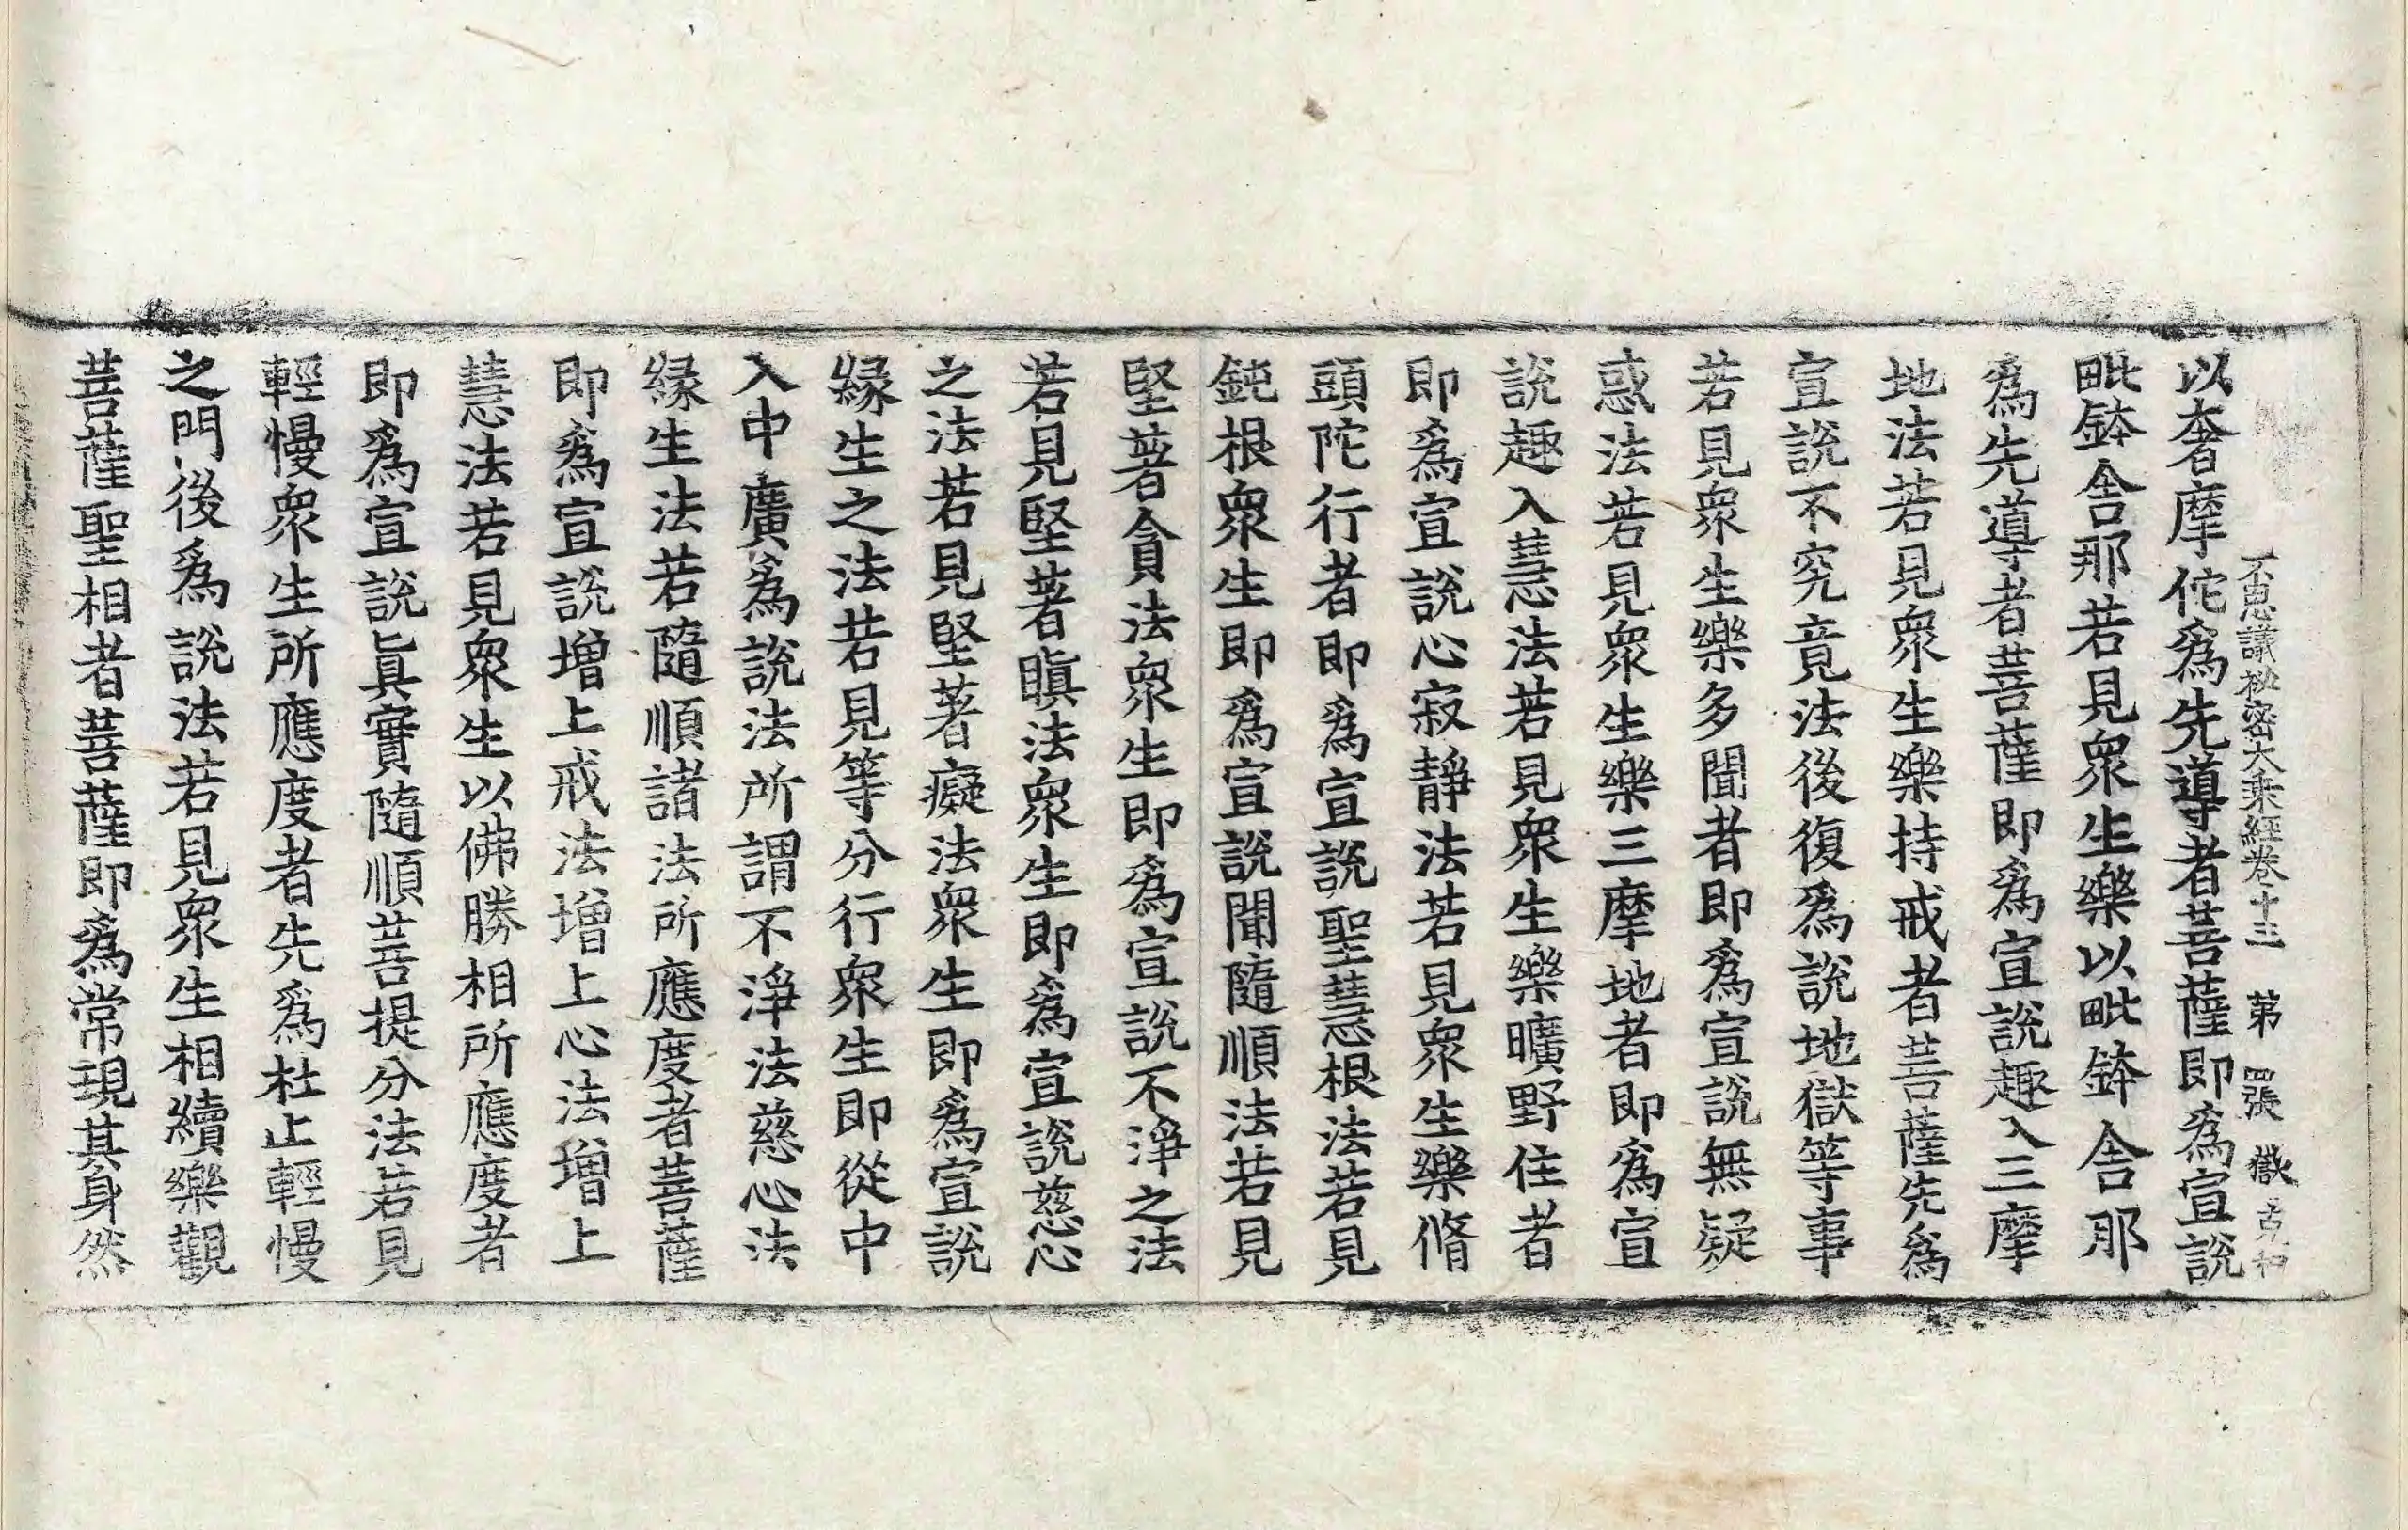 不思議祕密大乗經卷十三　第四張　㠢
以奢摩佗爲先導者菩薩即爲宣說
毗鉢舍那若見衆生樂以毗鉢舍那
爲先導者菩薩即爲宣說趣入三摩
地法若見衆生樂持戒者菩薩先爲
宣說不究竟法後復爲說地獄等事
若見衆生樂多聞者即爲宣說無疑
惑法若見衆生樂三摩地者即爲宣
說趣入慧法若見衆生樂曠野住者
即爲宣說心寂靜法若見衆生樂脩
頭陀行者即爲宣說聖慧根法若見
鈍根衆生即爲宣說聞隨順法若見
堅著貪法衆生即爲宣說不淨之法
若見堅著瞋法衆生即爲宣說慈心
之法若見堅著癡法衆生即爲宣說
緣生之法若見等分行衆生即從中
入中廣爲說法所謂不淨法慈心法
緣生法若隨順諸法所應度者菩薩
即爲宣說增上戒法增上心法增上
慧法若見衆生以佛勝相所應度者
即爲宣說眞實隨順菩提分法若見
輕慢衆生所應度者先爲杜止輕慢
之門後爲說法若見衆生相續樂觀
菩薩聖相者菩薩即爲常現其身然